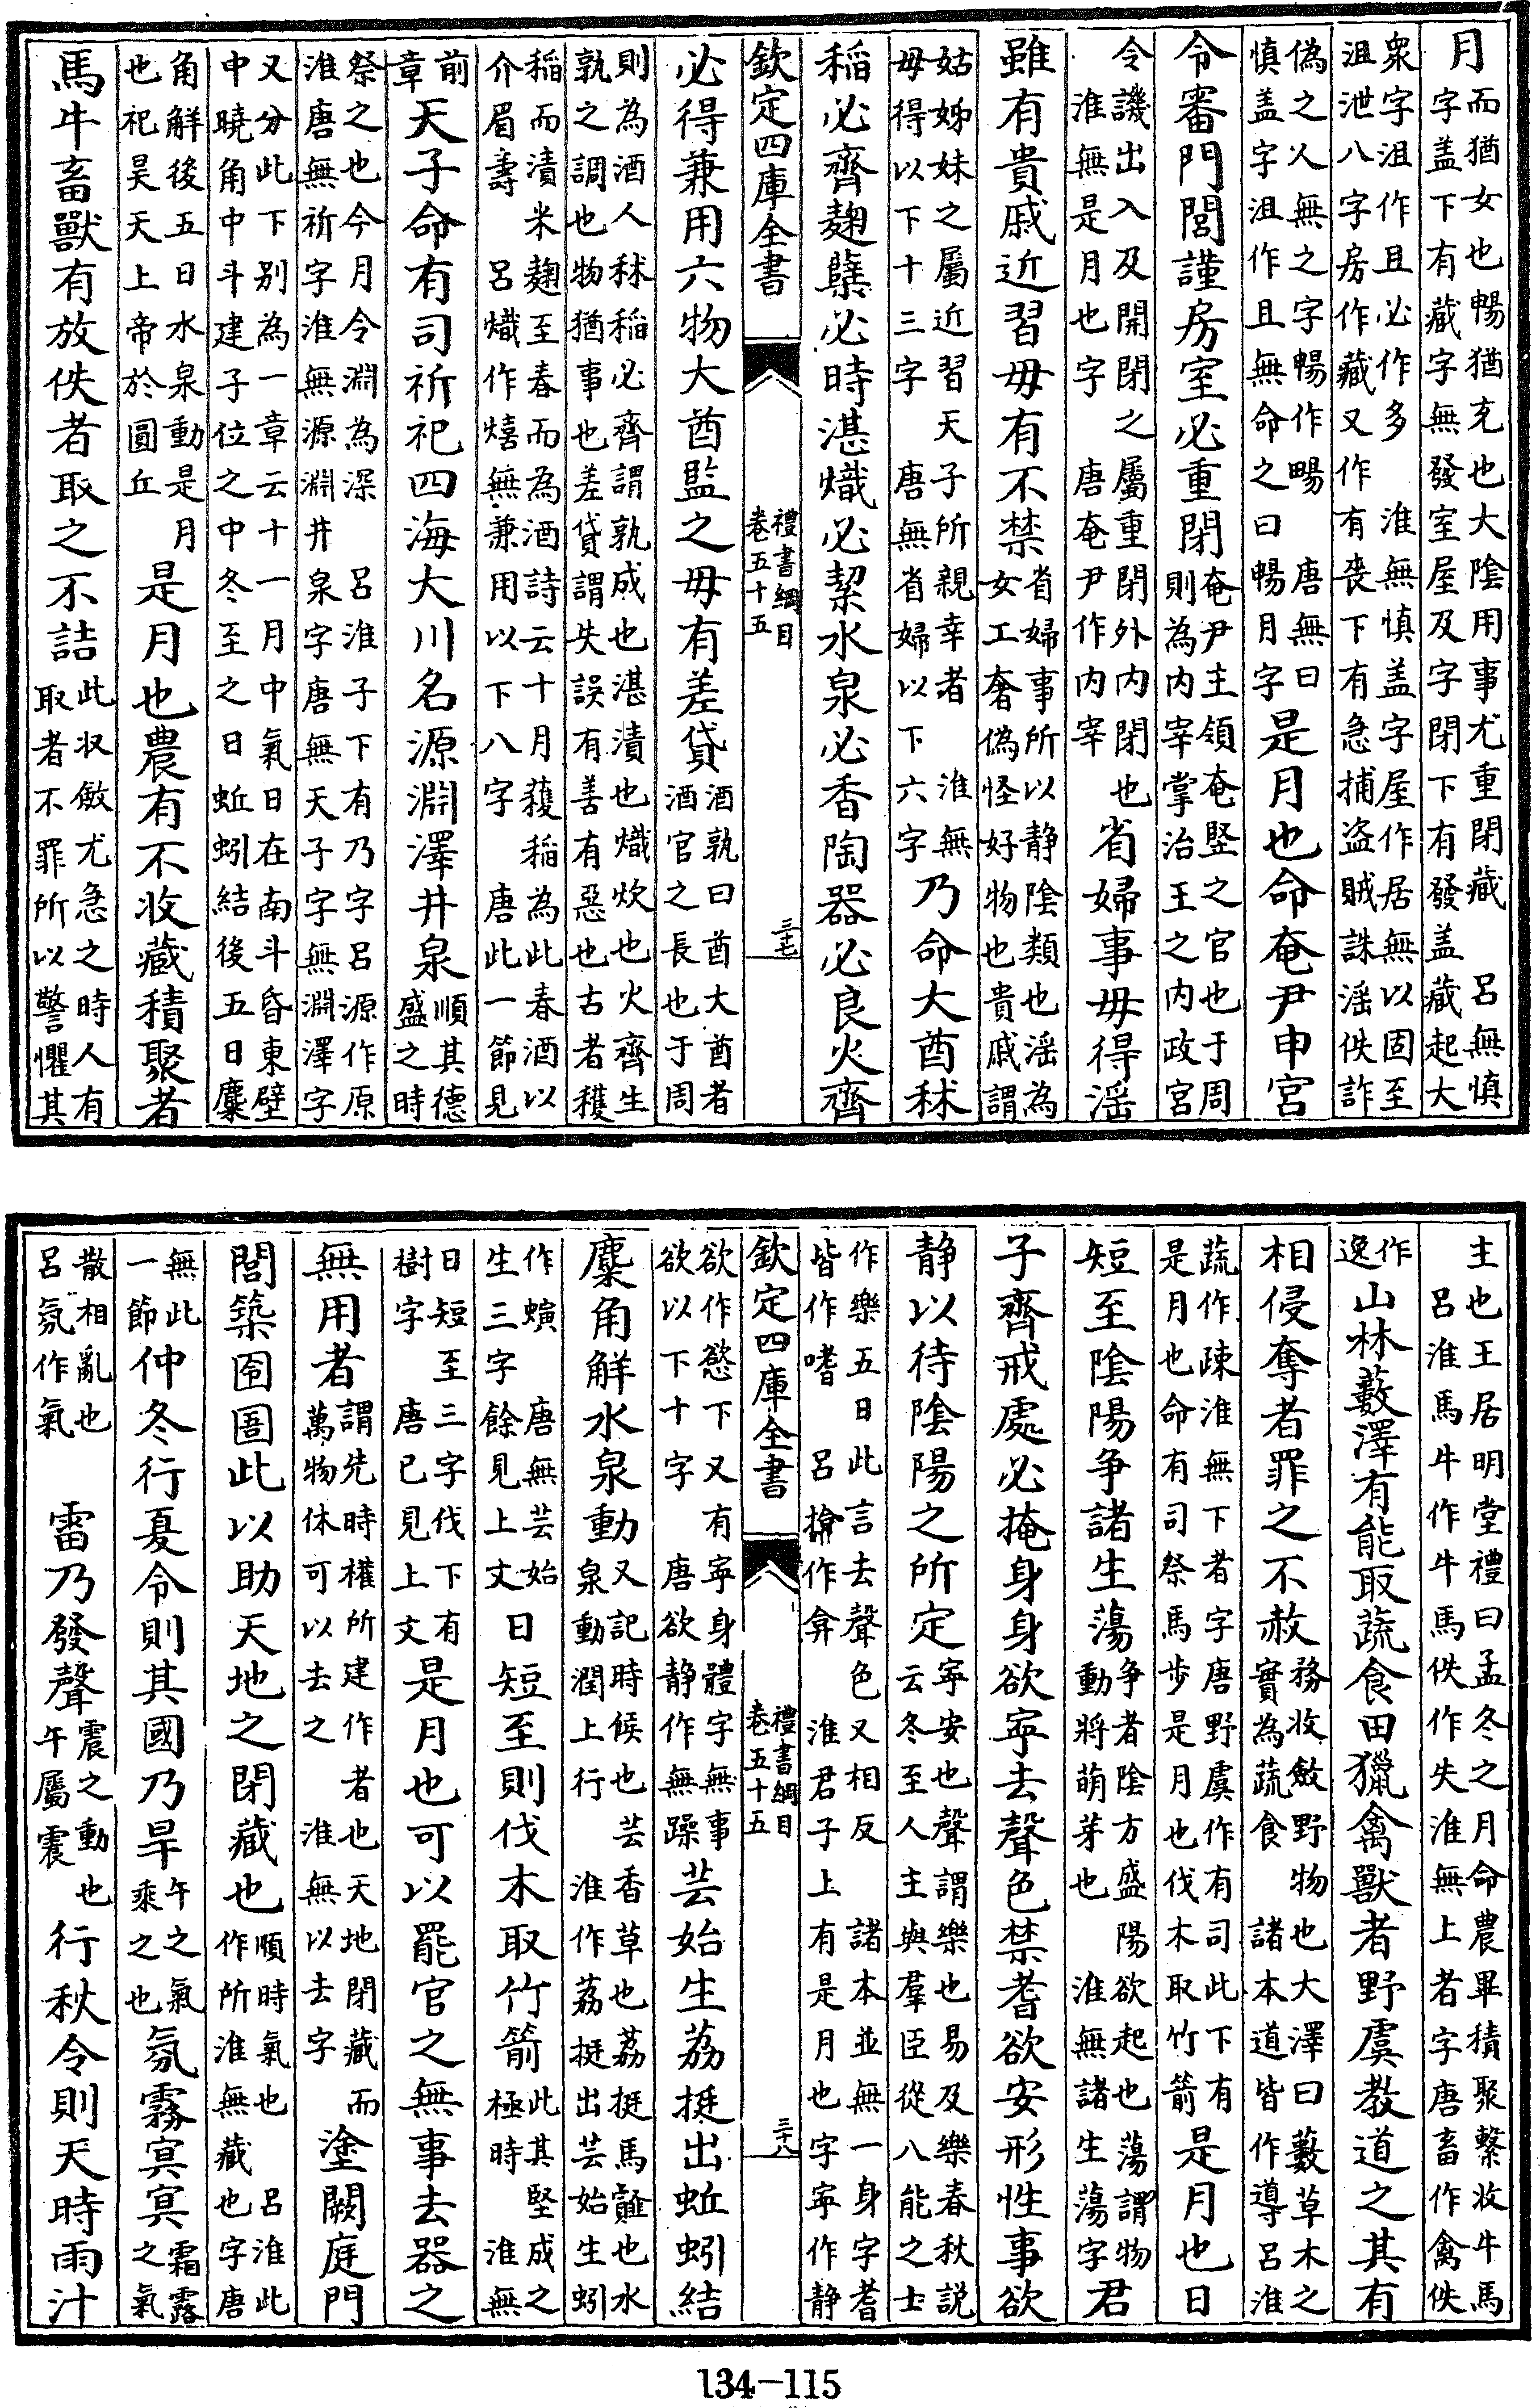 月而猶女也暢猶充也大隂用事尤重閉藏　吕無慎字盖下有藏字無發室屋及字閉下有發盖藏起大
衆字沮作且必作多　淮無慎盖字屋作居無以固至沮泄八字房作藏又作有喪下有急捕盗賊誅滛佚詐
偽之人無之字暢作畼　唐無曰慎盖字沮作且無命之曰暢月字是月也命奄尹申宫
令審門閭謹房室必重閉奄尹主領奄竪之官也于周則為内宰掌治王之内政宫
令譏出入及開閉之屬重閉外内閉也　淮無是月也字　唐奄尹作内宰省婦事毋得滛
雖有貴戚近習毋有不禁省婦事所以静隂類也滛為女工奢偽怪好物也貴戚謂
姑姊妹之屬近習天子所親幸者　淮無毋得以下十三字　唐無省婦以下六字乃命大酋秫
稻必齊麴糵必時湛熾必絜水泉必香陶器必良火齊
欽定四庫全書　禮書綱目卷五十五　三十七
必得兼用六物大酋監之毋有差貸酒孰曰酋大酋者酒官之長也于周
則為酒人秫稻必齊謂孰成也湛漬也熾炊也火齊生孰之調也物猶事也差貸謂失誤有善有惡也古者穫
稻而漬米麴至春而為酒詩云十月穫稻為此春酒以介眉壽　吕熾作熺無兼用以下八字　唐此一節見
前章天子命有司祈祀四海大川名源淵澤井泉順其德盛之時
祭之也今月令淵為深　吕淮子下有乃字吕源作原淮唐無祈字淮無源淵井泉字唐無天子字無淵澤字
又分此下别為一章云十一月中氣日在南斗昏東壁中曉角中斗建子位之中冬至之日蚯蚓結後五日麋
角解後五日水泉動是月也祀昊天上帝於圓丘　是月也農有不收藏積聚者
馬牛畜獸有放佚者取之不詰此收斂尤急之時人有取者不罪所以警懼其
主也王居明堂禮曰孟冬之月命農畢積聚繫收牛馬　吕淮馬牛作牛馬佚作失淮無上者字唐畜作禽佚
作逸山林藪澤有能取蔬食田獵禽獸者野虞教道之其有
相侵奪者罪之不赦務收斂野物也大澤曰藪草木之實為蔬食　諸本道皆作導吕淮
蔬作疎淮無下者字唐野虞作有司此下有是月也命有司祭馬步是月也伐木取竹箭是月也日
短至隂陽争諸生蕩争者隂方盛陽欲起也蕩謂物動將萌芽也　淮無諸生蕩字君
子齊戒處必掩身身欲寧去聲色禁耆欲安形性事欲
静以待隂陽之所定寧安也聲謂樂也易及樂春秋説云冬至人主與羣臣從八能之士
作樂五日此言去聲色又相反　諸本並無一身字耆皆作嗜　吕揜作弇　淮君子上有是月也字寧作静
欽定四庫全書　禮書綱目卷五十五　三十八
欲作慾下又有寧身體字無事欲以下十字　唐欲静作無躁芸始生荔挺出蚯蚓結
麋角解水泉動又記時候也芸香草也荔挺馬䪥也水泉動潤上行　淮作荔挺出芸始生蚓
作螾　唐無芸始生三字　餘見上文日短至則伐木取竹箭此其堅成之極時　淮無
日短至三字伐下有樹字　唐已見上文是月也可以罷官之無事去器之
無用者謂先時權所建作者也天地閉藏而萬物休可以去之　淮無以去字塗闕庭門
閭築囹圄此以助天地之閉藏也順時氣也　吕淮此作所淮無藏也字唐
無此一節仲冬行夏令則其國乃旱午之氣乘之也氛霧冥冥霜露之氣
散相亂也　吕氛作氣　雷乃發聲震之動也午屬震行秋令則天時雨汁
134-115